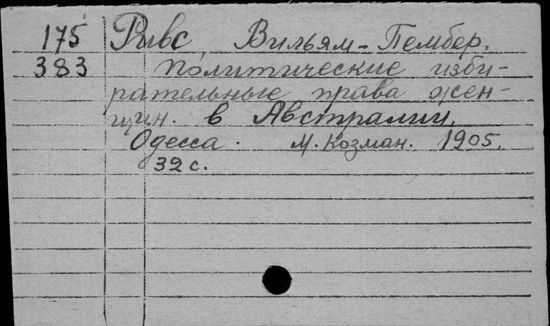 175 Ривс Вильям-Пембер.
383 Политические изби-
рательные права жен-
щин. в Австралии.
Одесса. М. Козман. 1905.
32 с.